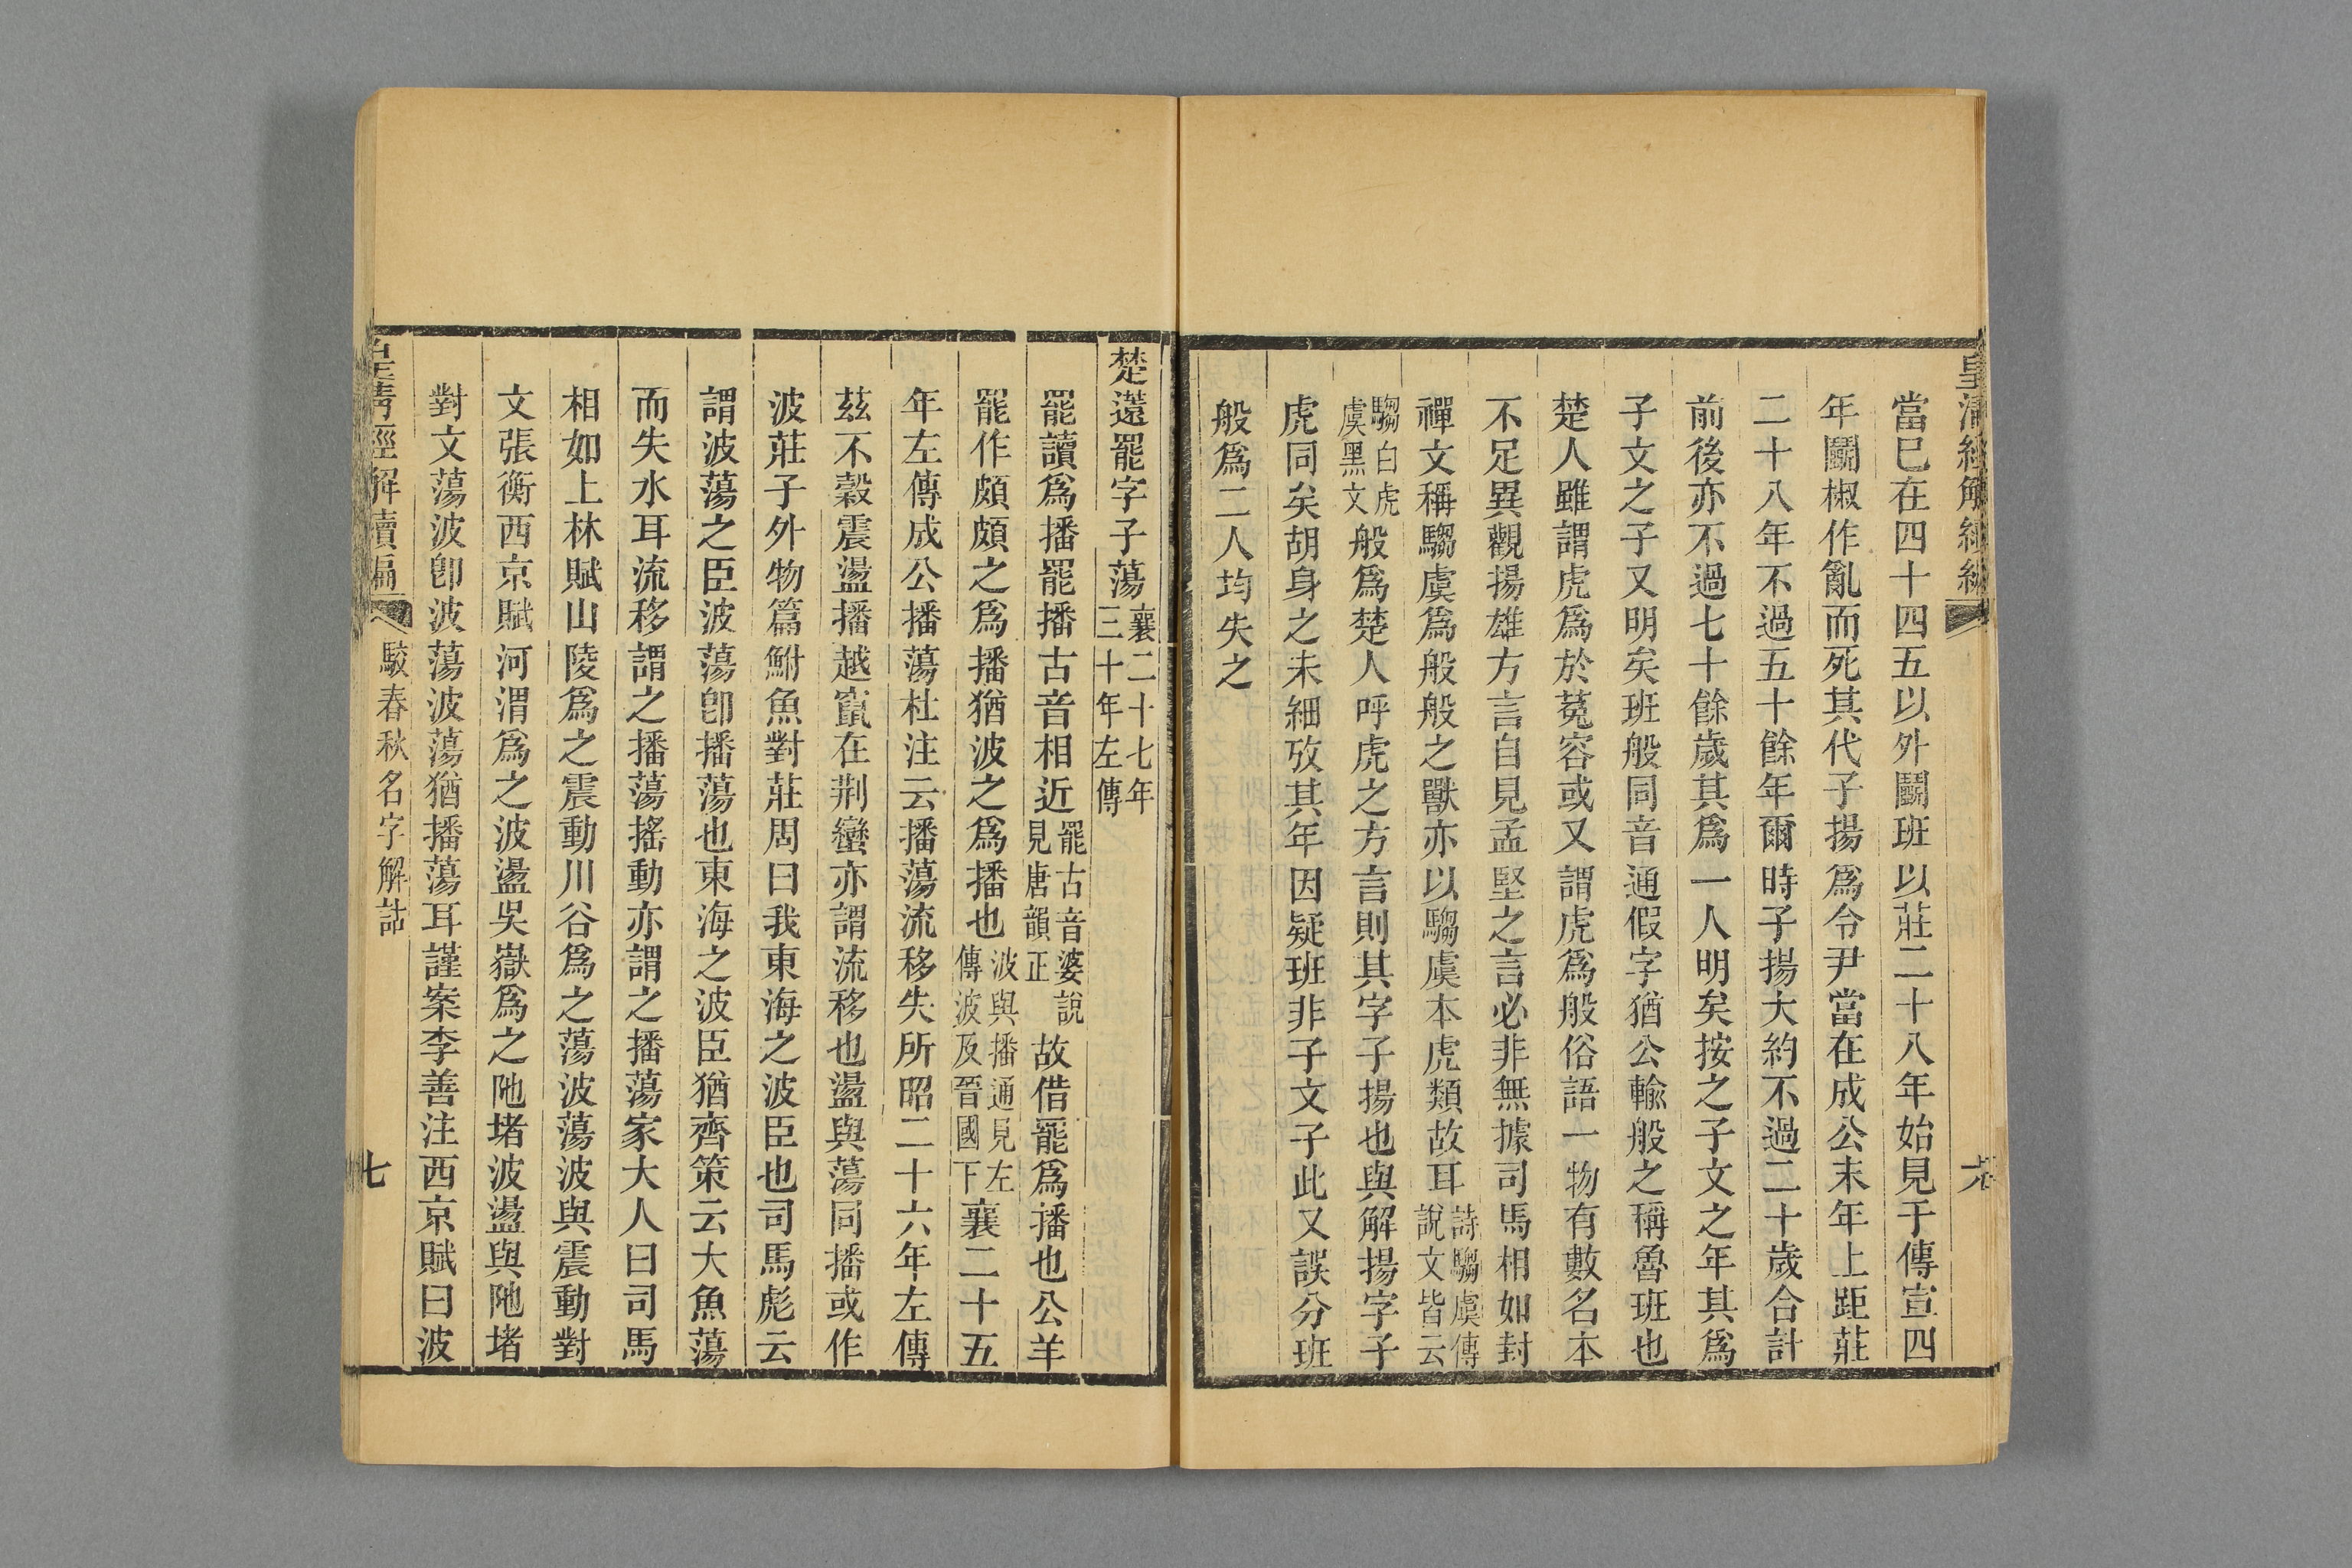 當巳在四十四五以外鬭班以莊二十八年始見于傳宣四
年鬭椒作亂而死其代子揚爲令尹當在成公末年上距莊
二十八年不過五十餘年爾時子揚大約不過二十歲合計
前後亦不過七十餘歲其爲一人明矣按之子文之年其爲
子文之子又明矣班般同音通假字猶公輸般之稱魯班也
楚人雖謂虎爲於菟容或又謂虎爲般俗語一物有數名本
不足異觀揚雄方言自見孟堅之言必非無據司馬相如封
禪文稱騶虞爲般般之獸亦以騶虞本虎類故耳詩騶虞傳說文皆云
騶白虎虞黑文般爲楚人呼虎之方言則其字子揚也與解揚字子
虎同矣胡身之未細攷其年因疑班非子文子此又誤分班
般爲二人均失之
楚薳罷字子蕩襄二十七年三十年左傳
罷讀爲播罷播古音相近罷古音婆說見唐韻正故借罷爲播也公羊
罷作頗頗之爲播猶波之爲播也波與播通見左傳波及晉國下襄二十五
年左傳成公播蕩杜注云播蕩流移失所昭二十六年左傳
茲不穀震盪播越竄在荆蠻亦謂流移也盪與蕩同播或作
波莊子外物篇鮒魚對莊周曰我東海之波臣也司馬彪云
謂波蕩之臣波蕩卽播蕩也東海之波臣猶齊策云大魚蕩
而失水耳流移謂之播蕩搖動亦謂之播蕩家大人曰司馬
相如上林賦山陵爲之震動川谷爲之蕩波蕩波與震動對
文張衡西京賦河渭爲之波盪吳嶽爲之陁堵波盪與陁堵
對文蕩波卽波蕩波蕩猶播蕩耳謹案李善注西京賦曰波
皇清經解續編
駮春秋名字解詁
七